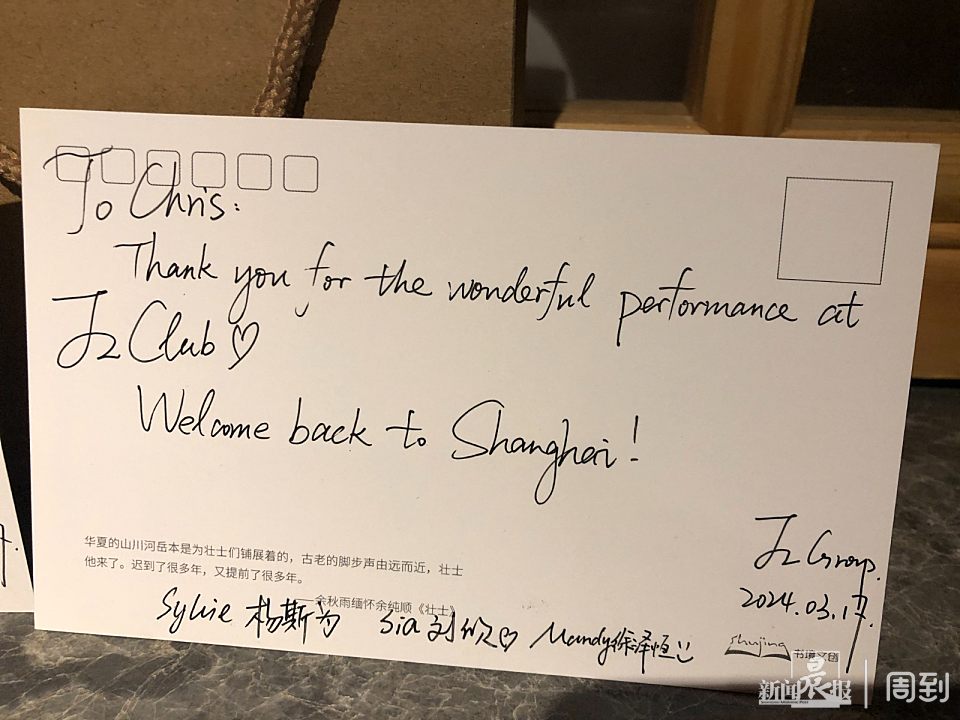 To Chris:
Thank you for the wonderful performance at
Jz Club ♡
Welcome back to Shanghai!
Jz Group.
2024.03.17.
华夏的山川河岳本是为壮士们铺展着的，古老的脚步声由远而近，壮士
他来了。迟到了很多年，又提前了很多年。
——余秋雨缅怀余纯顺《壮士》
Sylvie 杨斯为 Sia 刘欣♡ Mandy徐泽恒
shujing 书境文创
新闻晨报 | 周到
SHANGHAI MORNING POST